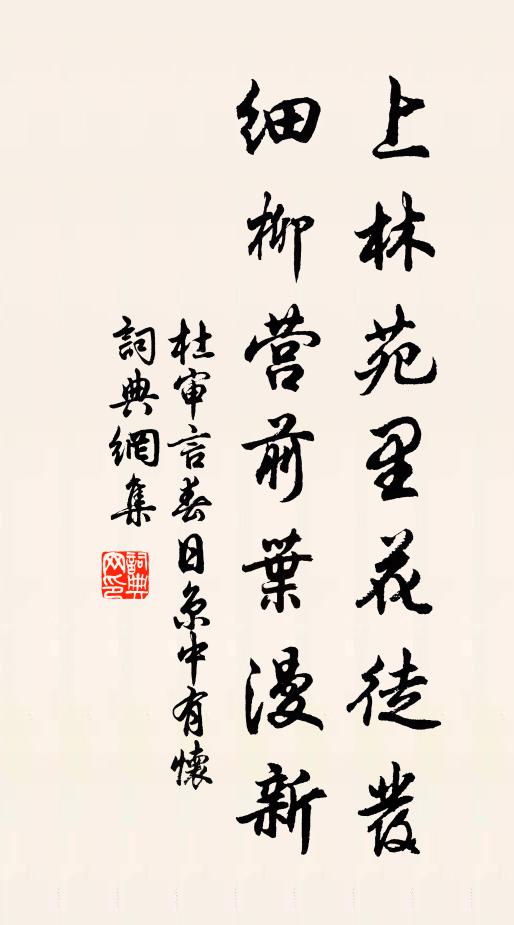 上林苑里花徒發
細柳营前葉漫新
杜审言春日京中有懷
詞典網集
詞典網印